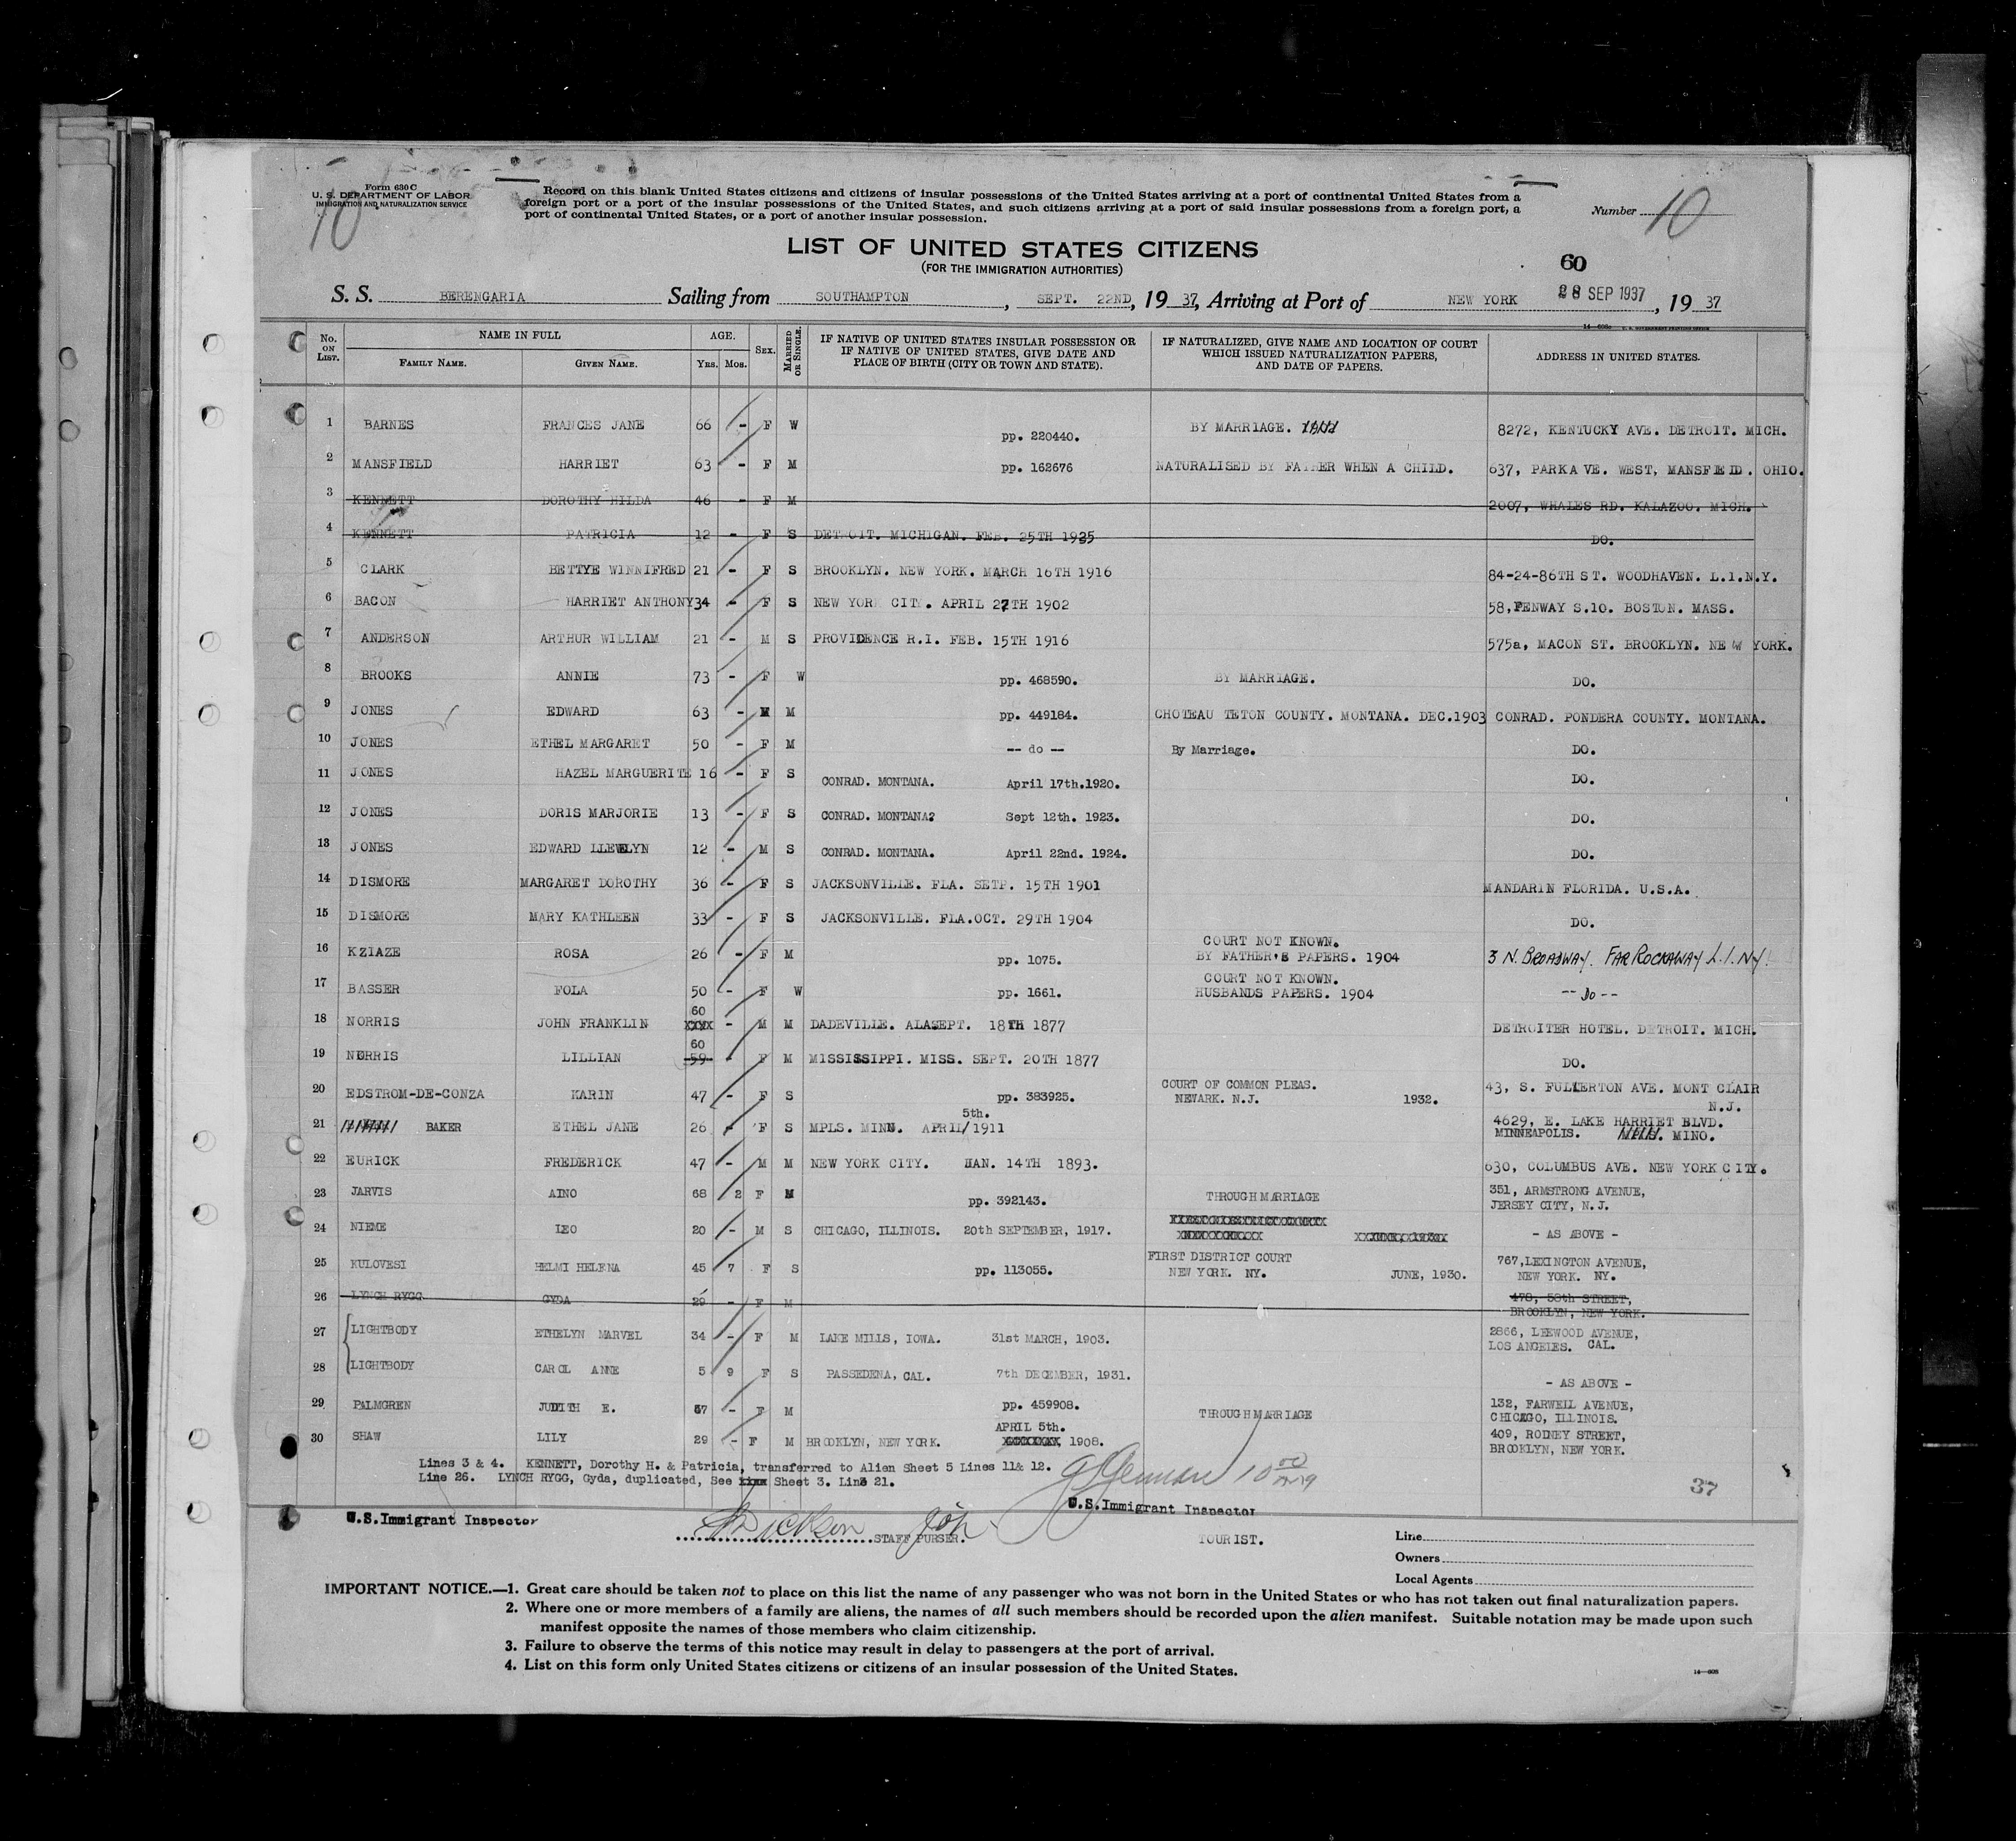 Form 630 C
U. S. DEPARTMENT OF LABOR
IMMIGRATION AND NATURALIZATION SERVICE
10
Record on this blank United States citizens and citizens of insular possessions of the United States arriving at a port of continental United States from a
foreign port or a port of the insular possessions of the United States, and such citizens arriving at a port of said insular possessions from a foreign port, a
port of continental United States, or a port of another insular possession.
Number 10
LIST OF UNITED STATES CITIZENS
(FOR THE IMMIGRATION AUTHORITIES)
60
S. S. BERENGARIA Sailing from SOUTHAMPTON, SEPT. 22ND, 19 37, Arriving at Port of NEW YORK 28 SEP 1937, 19 37
No. ON LIST. NAME IN FULL FAMILY NAME. GIVEN NAME. AGE. YRS. MOS. SEX. MARRIED OR SINGLE. IF NATIVE OF UNITED STATES INSULAR POSSESSION OR IF NATIVE OF UNITED STATES, GIVE DATE AND PLACE OF BIRTH (CITY OR TOWN AND STATE). IF NATURALIZED, GIVE NAME AND LOCATION OF COURT WHICH ISSUED NATURALIZATION PAPERS, AND DATE OF PAPERS. ADDRESS IN UNITED STATES.
1 BARNES FRANCES JANE 66 - F W pp. 220440. BY MARRIAGE. 8272, KENTUCKY AVE. DETROIT. MICH.
2 MANSFIELD HARRIET 63 - F M pp. 162676 NATURALISED BY FATHER WHEN A CHILD. 637, PARKA VE. WEST, MANSFIELD. OHIO.
3 KENNETT DOROTHY HILDA 46 - F M 2007, WHALES RD. KALAZOO. MICH.
4 KENNETT PATRICIA 12 - F S DETROIT. MICHIGAN. FEB. 25TH 1925 DO.
5 CLARK BETTYE WINNIFRED 21 - F S BROOKLYN. NEW YORK. MARCH 16TH 1916 84-24-86TH ST. WOODHAVEN. L.I.N.Y.
6 BACON HARRIET ANTHONY 34 - F S NEW YORK CITY. APRIL 27TH 1902 58, FENWAY S.10. BOSTON. MASS.
7 ANDERSON ARTHUR WILLIAM 21 - M S PROVIDENCE R.I. FEB. 15TH 1916 575a, MACON ST. BROOKLYN. NEW YORK.
8 BROOKS ANNIE 73 - F W pp. 468590. BY MARRIAGE. DO.
9 JONES EDWARD 63 - M M pp. 449184. CHOTEAU TETON COUNTY. MONTANA. DEC.1903 CONRAD. PONDERA COUNTY. MONTANA.
10 JONES ETHEL MARGARET 50 - F M -- do -- By Marriage. DO.
11 JONES HAZEL MARGUERITE 16 - F S CONRAD. MONTANA. April 17th.1920. DO.
12 JONES DORIS MARJORIE 13 - F S CONRAD. MONTANA? Sept 12th. 1923. DO.
13 JONES EDWARD LLEWELYN 12 - M S CONRAD. MONTANA. April 22nd. 1924. DO.
14 DISMORE MARGARET DOROTHY 36 - F S JACKSONVILLE. FLA. SETP. 15TH 1901 MANDARIN FLORIDA. U.S.A.
15 DISMORE MARY KATHLEEN 33 - F S JACKSONVILLE. FLA.OCT. 29TH 1904 DO.
16 KZIAZE ROSA 26 - F M pp. 1075. COURT NOT KNOWN. BY FATHER'S PAPERS. 1904 3 N. BROADWAY. FAR ROCKAWAY L.I. NY.
17 BASSER FOLA 50 - F W pp. 1661. COURT NOT KNOWN. HUSBANDS PAPERS. 1904 -- Do --
18 NORRIS JOHN FRANKLIN 60 XXXX - M M DADEVILLE. ALASEPT. 18TH 1877 DETROITER HOTEL. DETROIT. MICH.
19 NORRIS LILLIAN 60 59 - F M MISSISSIPPI. MISS. SEPT. 20TH 1877 DO.
20 EDSTROM-DE-CONZA KARIN 47 - F S pp. 383925. COURT OF COMMON PLEAS. NEWARK. N.J. 1932. 43, S. FULLERTON AVE. MONT CLAIR N.J.
21 BAKER ETHEL JANE 26 - F S MPLS. MINN. APRIL/ 5th. 1911 4629, E. LAKE HARRIET BLVD. MINNEAPOLIS. MINO.
22 EURICK FREDERICK 47 - M M NEW YORK CITY. JAN. 14TH 1893. 630, COLUMBUS AVE. NEW YORK CITY.
23 JARVIS AINO 68 2 F M pp. 392143. THROUGH MARRIAGE 351, ARMSTRONG AVENUE, JERSEY CITY, N.J.
24 NIEME LEO 20 - M S CHICAGO, ILLINOIS. 20th SEPTEMBER, 1917. - AS ABOVE -
25 KULOVESI HELMI HELENA 45 7 F S pp. 113055. FIRST DISTRICT COURT NEW YORK. NY. JUNE, 1930. 767, LEXINGTON AVENUE, NEW YORK. NY.
26 LYNCH RYGG GYDA 29 - F M 478, 58th STREET, BROOKLYN, NEW YORK.
27 LIGHTBODY ETHELYN MARVEL 34 - F M LAKE MILLS, IOWA. 31st MARCH, 1903. 2866, LEEWOOD AVENUE, LOS ANGELES. CAL.
28 LIGHTBODY CAROL ANNE 5 9 F S PASSEDENA, CAL. 7th DECEMBER, 1931. - AS ABOVE -
29 PALMGREN JUDITH E. 57 - F M pp. 459908. THROUGH MARRIAGE 132, FARWELL AVENUE, CHICAGO, ILLINOIS.
30 SHAW LILY 29 - F M BROOKLYN, NEW YORK. APRIL 5th. 1908. 409, RODNEY STREET, BROOKLYN, NEW YORK.
Lines 3 & 4. KENNETT, Dorothy H. & Patricia, transferred to Alien Sheet 5 Lines 11& 12.
Line 26. LYNCH RYGG, Gyda, duplicated, See Sheet 3. Line 21.
37
U.S.Immigrant Inspector
U.S.Immigrant Inspector
Dickson STAFF PURSER.
TOURIST.
Line
Owners
Local Agents
IMPORTANT NOTICE.—1. Great care should be taken not to place on this list the name of any passenger who was not born in the United States or who has not taken out final naturalization papers.
2. Where one or more members of a family are aliens, the names of all such members should be recorded upon the alien manifest. Suitable notation may be made upon such
manifest opposite the names of those members who claim citizenship.
3. Failure to observe the terms of this notice may result in delay to passengers at the port of arrival.
4. List on this form only United States citizens or citizens of an insular possession of the United States.